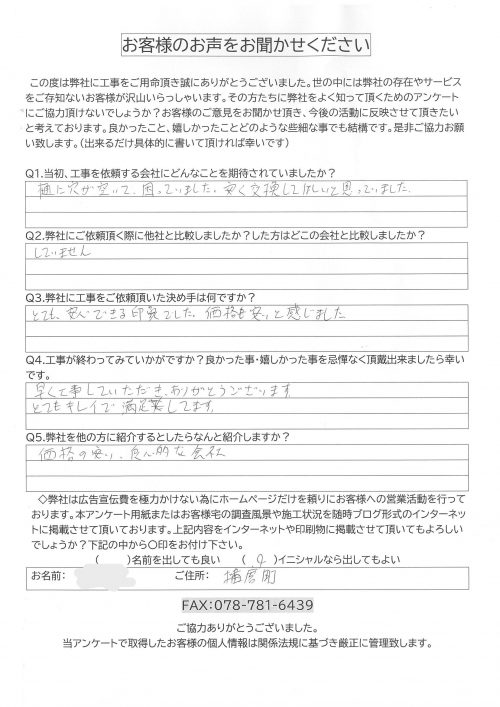 お客様のお声をお聞かせください
この度は弊社に工事をご用命頂き誠にありがとうございました。世の中には弊社の存在やサービス
をご存知ないお客様が沢山いらっしゃいます。その方たちに弊社をよく知って頂くためのアンケート
にご協力頂けないでしょうか？お客様のご意見をお聞かせ頂き、今後の活動に反映させて頂きたい
と考えております。良かったこと、嬉しかったことどのような些細な事でも結構です。是非ご協力お願
い致します。（出来るだけ具体的に書いて頂ければ幸いです）
Q1.当初、工事を依頼する会社にどんなことを期待されていましたか？
樋に穴が空いて、困っていました。安く交換してほしいと思っていました。
Q2.弊社にご依頼頂く際に他社と比較しましたか？した方はどこの会社と比較しましたか？
していません
Q3.弊社に工事をご依頼頂いた決め手は何ですか？
とても、安心できる印象でした。価格も安いと感じました
Q4.工事が終わってみていかがですか？良かった事・嬉しかった事を忌憚なく頂戴出来ましたら幸い
です。
早く工事していただき、ありがとうございます
とてもキレイで満足してます。
Q5.弊社を他の方に紹介するとしたらなんと紹介しますか？
価格の安い、良心的な会社
◇弊社は広告宣伝費を極力かけない為にホームページだけを頼りにお客様への営業活動を行って
おります。本アンケート用紙またはお客様宅の調査風景や施工状況を随時ブログ形式のインターネッ
トに掲載させて頂いております。上記内容をインターネットや印刷物に掲載させて頂いてもよろしい
でしょうか？下記の中から〇印をお付け下さい。
（　　）名前を出しても良い　（　）イニシャルなら出してもよい
お名前：　ご住所：　播磨町
FAX:078-781-6439
ご協力ありがとうございました。
当アンケートで取得したお客様の個人情報は関係法規に基づき厳正に管理致します。